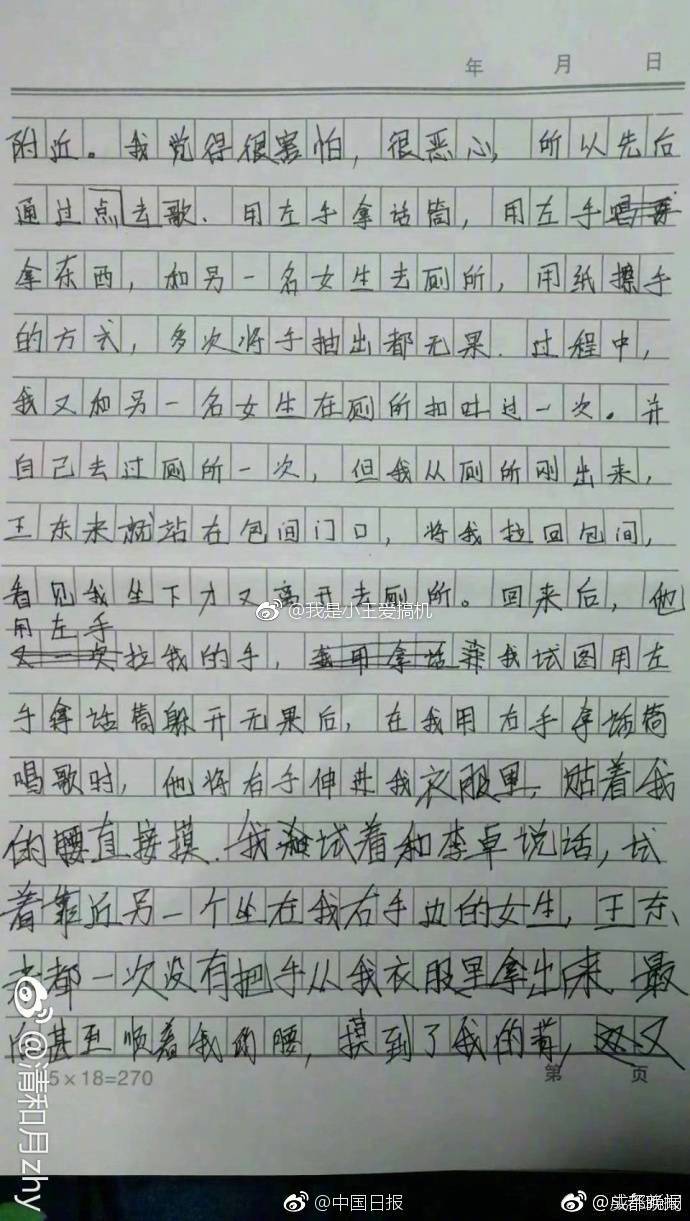 年 月 日
附近。我觉得很害怕,很恶心,所以先后
通过点去歌.用左手拿话筒,用左手
拿东西,和另一名女生去厕所,用纸擦手
的方式,多次将手抽出都无果.过程中,
我又和另一名女生在厕所扣吐过一次。并
自己去过厕所一次,但我从厕所刚出来,
王东来就站在包间门口,将我拉回包间,
看见我坐下才又离开去厕所。回来后,他
用左手
又一次拉我的手,我用拿话 我试图用左
手拿话筒躲开无果后,在我用右手拿话筒
唱歌时,他将右手伸进我衣服里,贴着我
的腰直接摸.我 试着和李卓说话,试
着靠近另一个坐在我右手边的女生,王东
来都一次没有把手从我衣服里拿出来.最
后甚至顺着我的腰,摸到了我的背,又
5×18=270
第 页
@我是小王爱搞机
@清和月zhy
@中国日报
@成都晚报